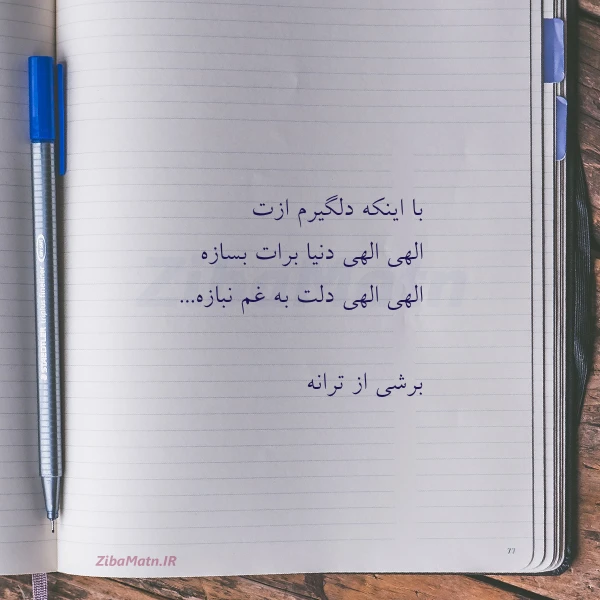 با اینکه دلگیرم ازت
الهی الهی دنیا برات بسازه
الهی الهی دلت به غم نبازه...
برشی از ترانه
ZibaMatn.IR